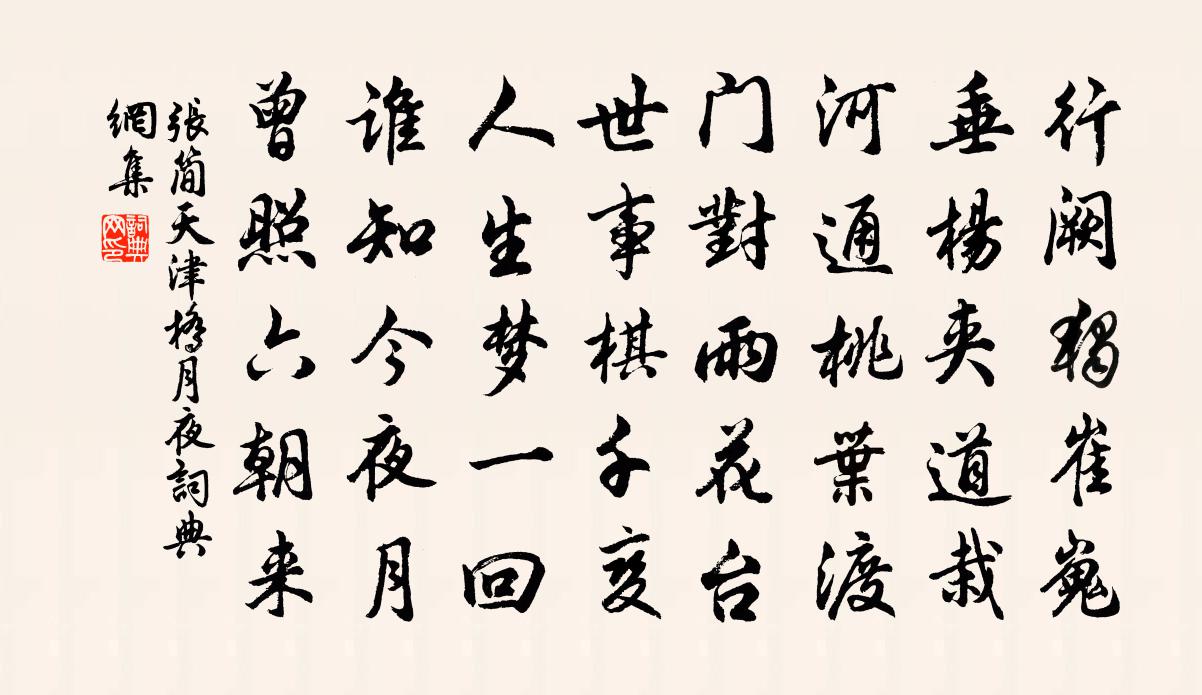 行阙獨崔嵬
垂楊夾道栽
河通桃葉渡
门對雨花台
世事棋千变
人生梦一回
谁知今夜月
曾照六朝来
張简天津橋月夜詞典
網集
詞典
网印